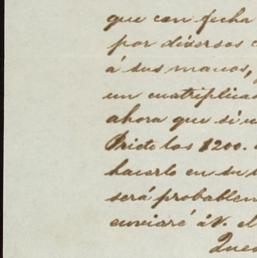 que con fecha
por diversos c
á sus manos,
un cuatriplicad
ahora que si u
Prieto los 1200.
hacerlo en su
será probablem
enviaré á V. el
Qued